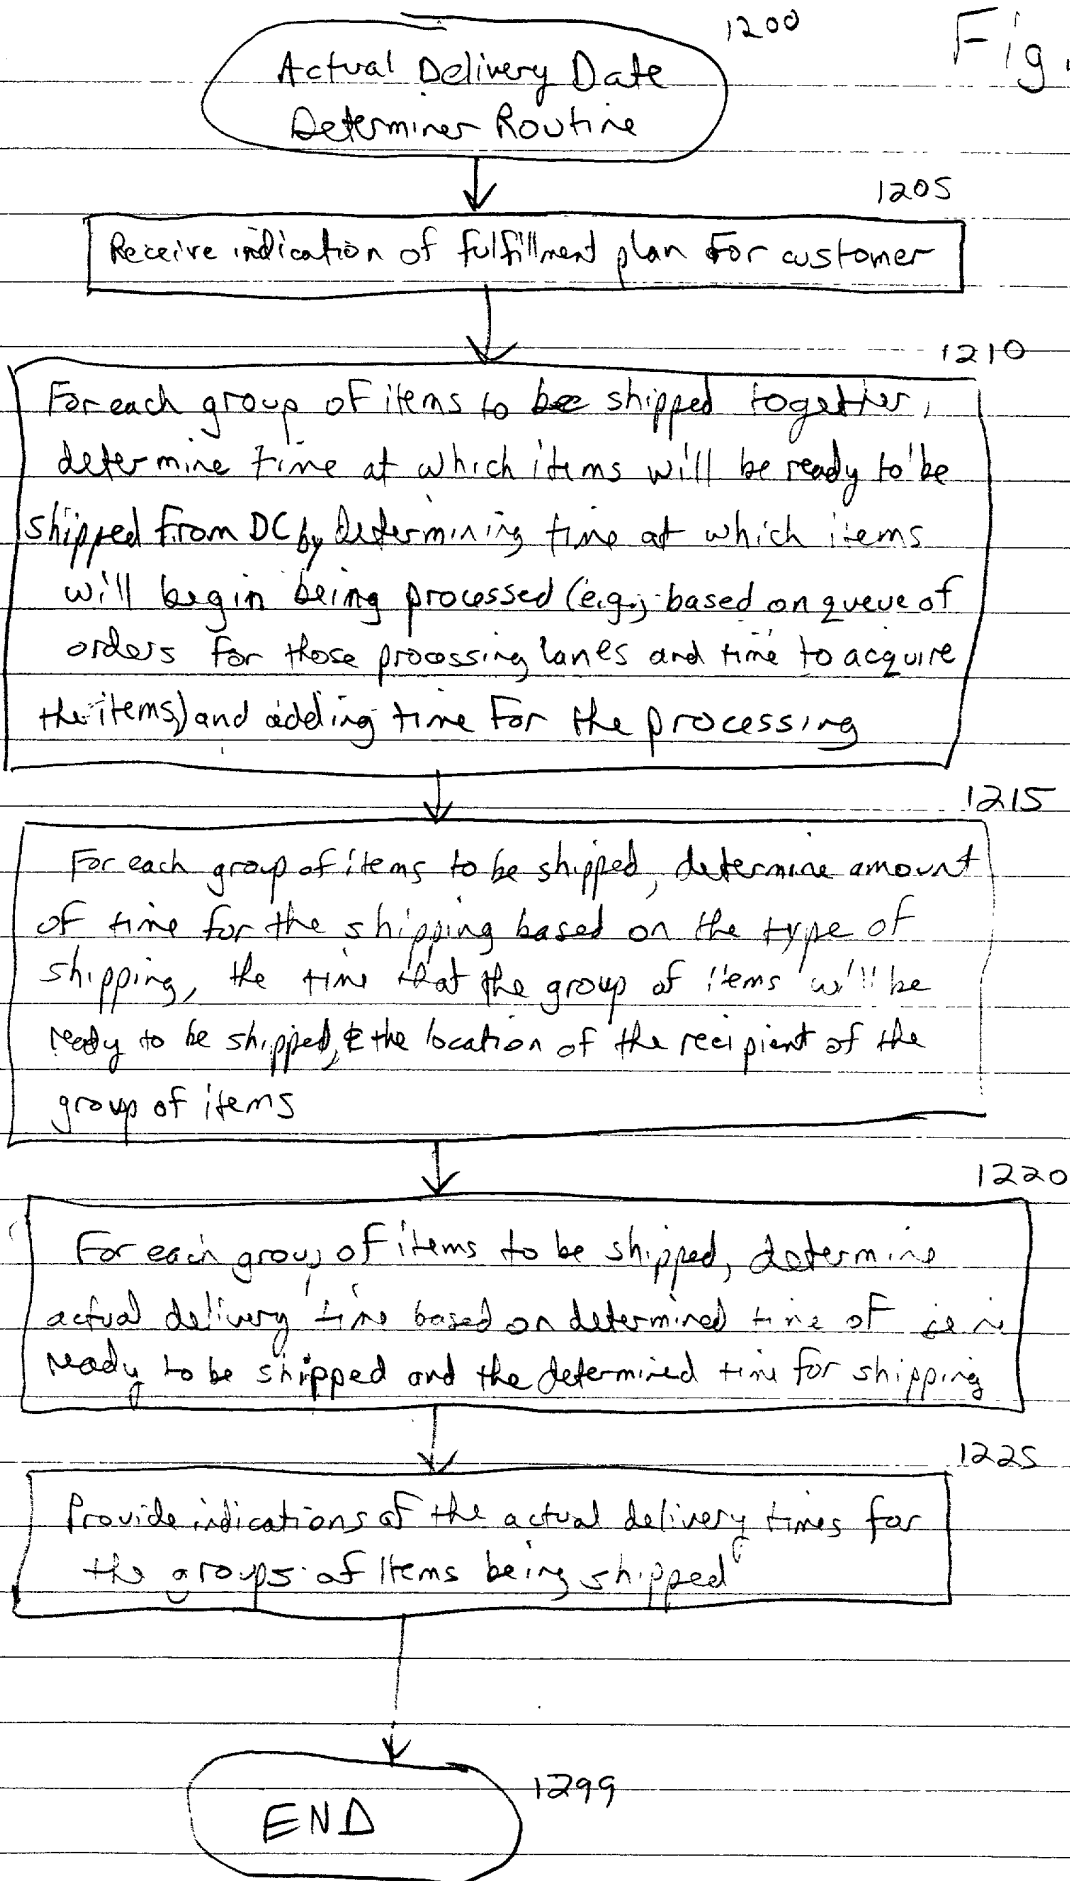 1200
Fig.
Actual Delivery Date
Determiner Routine
1205
Receive indication of fulfillment plan for customer
1210
For each group of items to be shipped together,
determine time at which items will be ready to be
shipped from DC by determining time at which items
will begin being processed (e.g., based on queue of
orders for those processing lanes and time to acquire
the items) and adding time for the processing
1215
For each group of items to be shipped, determine amount
of time for the shipping based on the type of
shipping, the time that the group of items will be
ready to be shipped, & the location of the recipient of the
group of items
1220
For each group of items to be shipped, determine
actual delivery time based on determined time of
ready to be shipped and the determined time for shipping
1225
Provide indications of the actual delivery times for
the groups of items being shipped
END
1299